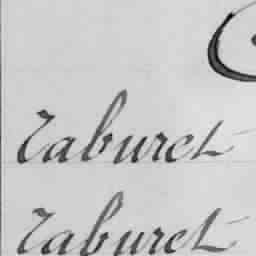 Taburet
Taburet